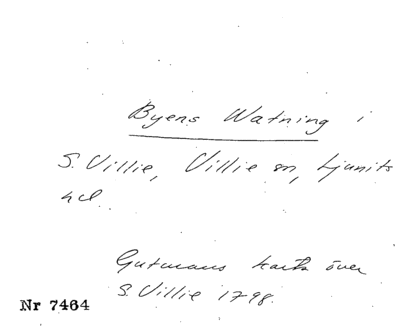 Byens Watning i
S. Villie, Villie sn, Ljunits
hd.
Gutmans karta över
S. Villie 1798.
Nr 7464